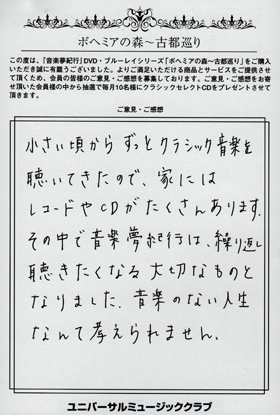 ボヘミアの森～古都巡り
この度は、「音楽夢紀行」DVD・ブルーレイシリーズ「ボヘミアの森～古都巡り」をご購入
いただき誠に有難うございました。よりご満足いただける商品とサービスをご提供させ
て頂くため、会員の皆様のご意見・ご感想を募集しております。ご意見・ご感想をお寄
せ頂いた会員様の中から抽選で毎月10名様にクラシックセレクトCDをプレゼントさせて
頂きます。
ご意見・ご感想
小さい頃から ずっとクラシック音楽を
聴いてきたので、家には
レコードやCDがたくさんあります。
その中で音楽夢紀行は、繰り返し
聴きたくなる 大切なものと
なりました。音楽のない人生
なんて考えられません。
ユニバーサルミュージッククラブ